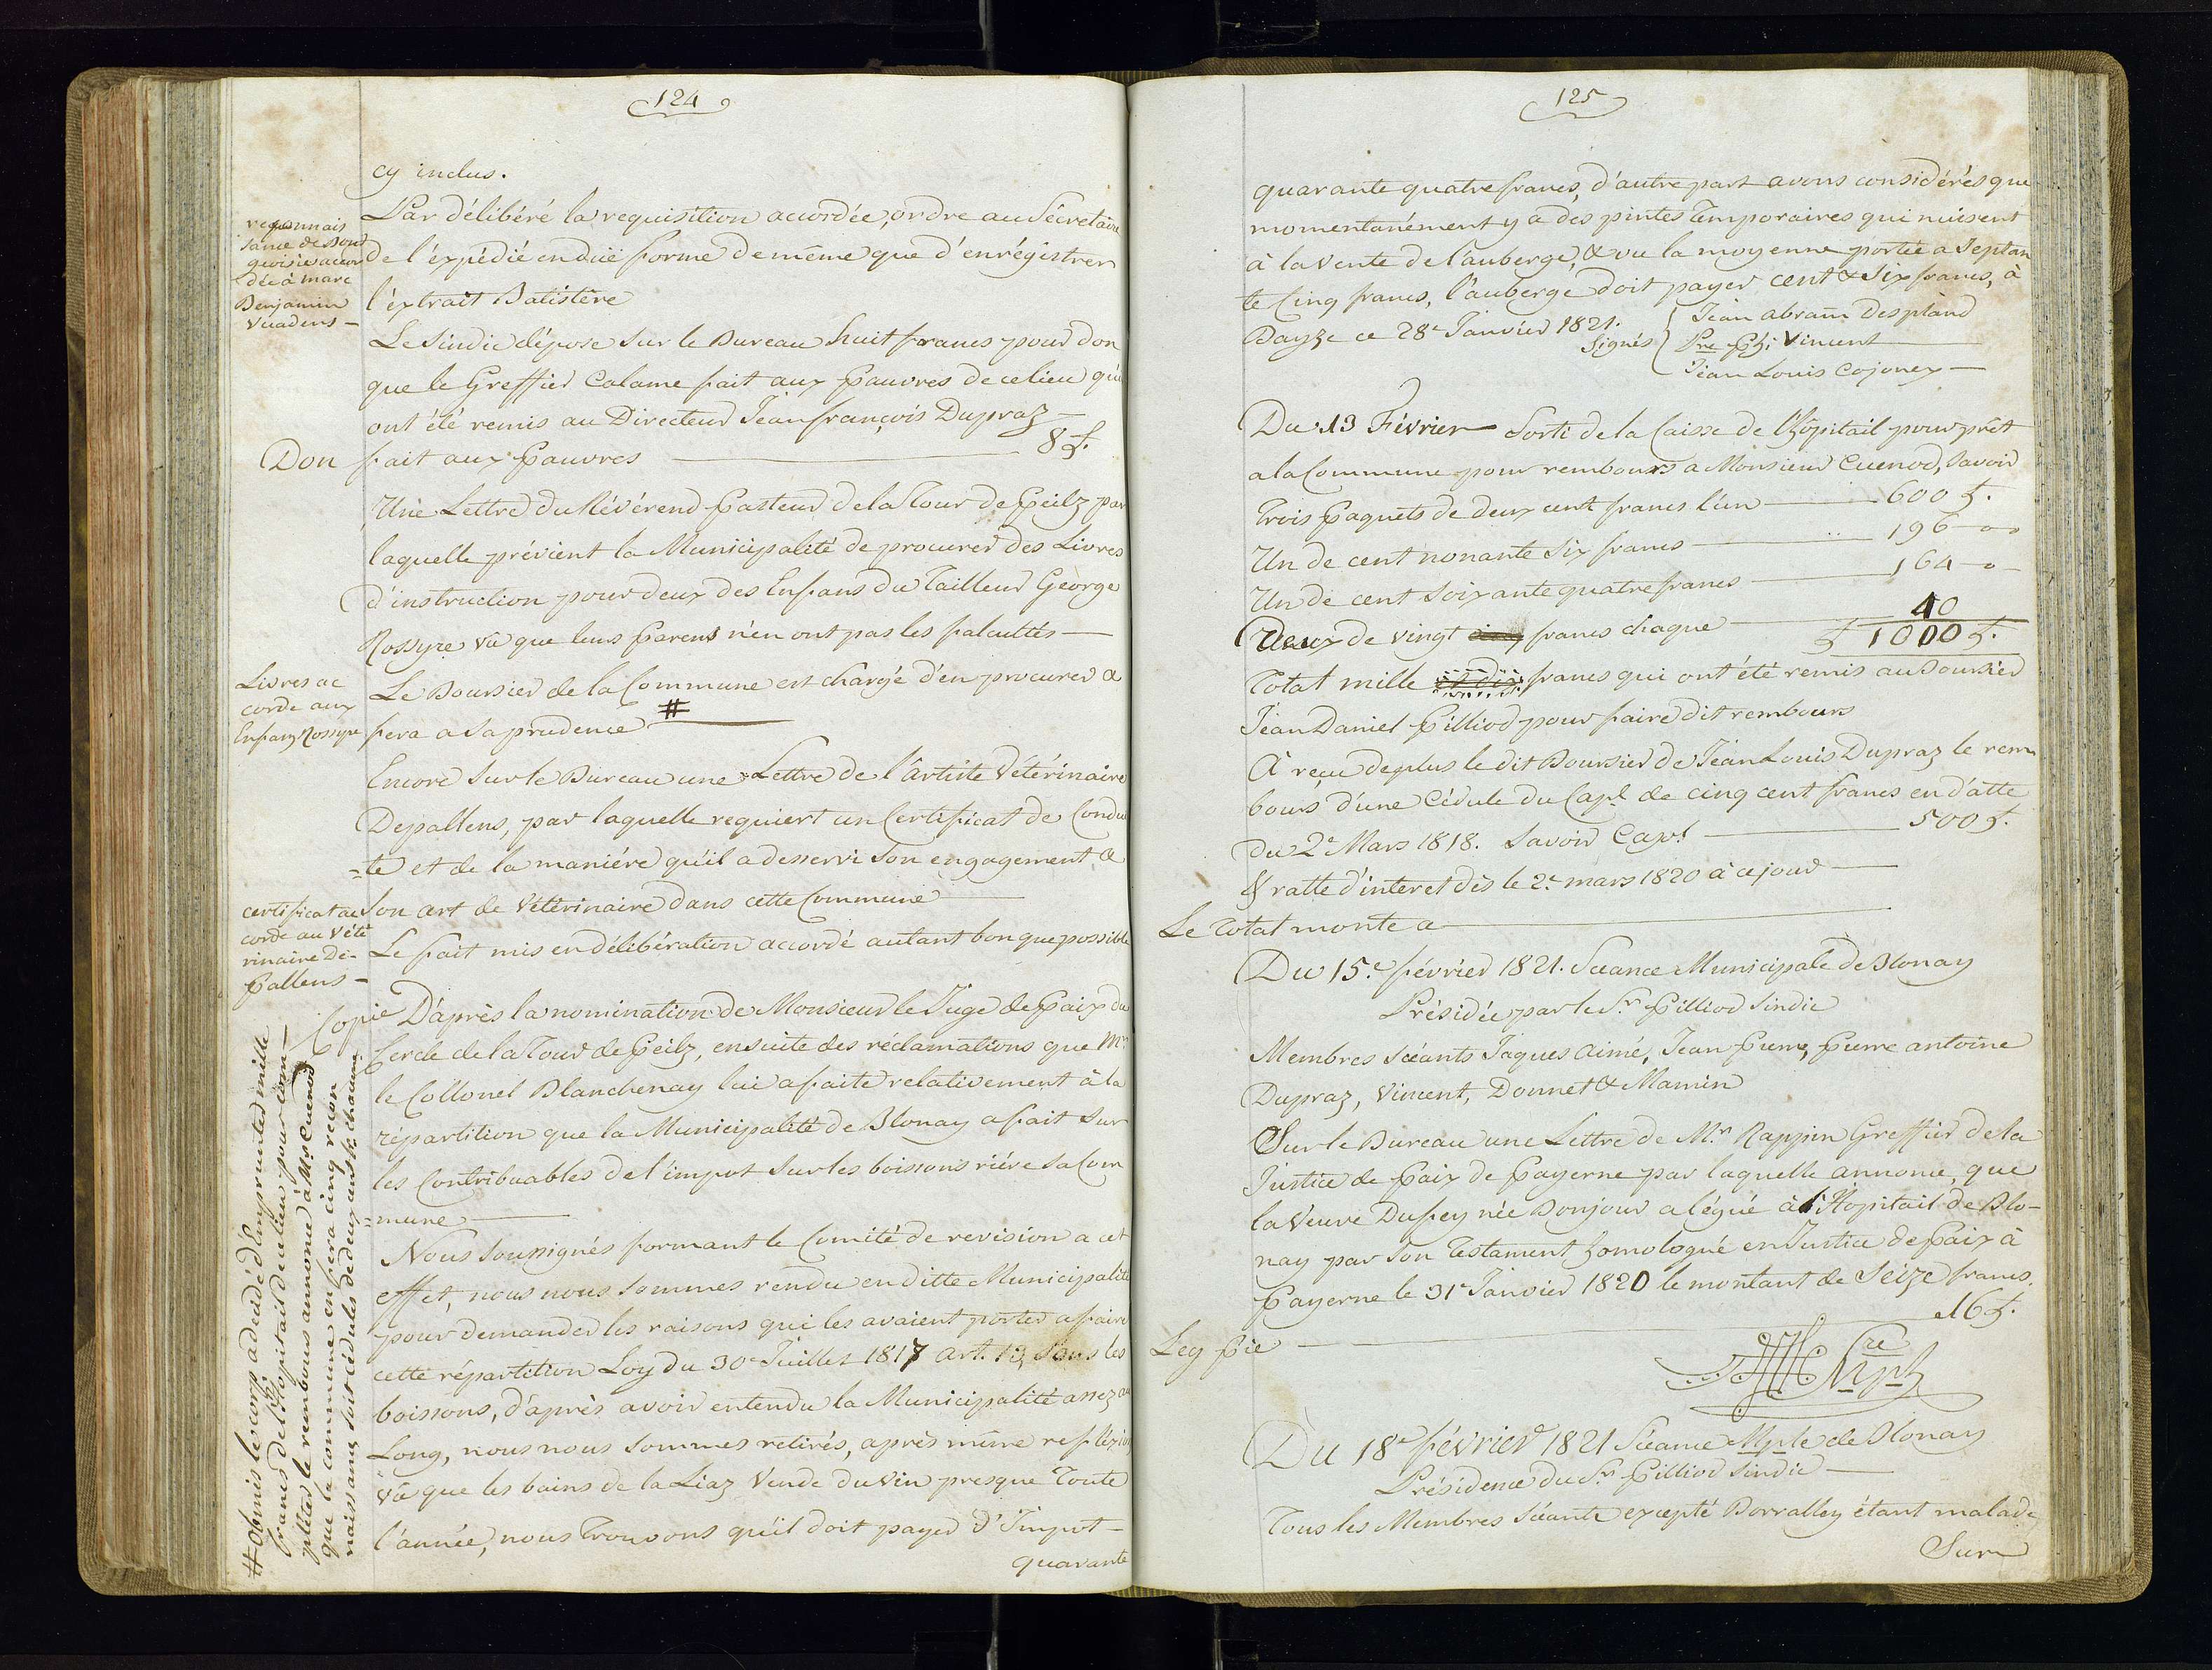 124
cy inclus.
Par délibéré la requisition accordée, ordre au Sécretaire
de l'expédié en düe forme de même que d'enrégistrer
l'extrait Batistère
reconnais
sance de Bour
geoisie accor
dée à marc
Benjamin
Vuadens -
Le Sindic dépose sur le Bureau huit francs pour don
que le Greffier Calame fait aux pauvres de ce lieu qui
ont été remis au Directeur Jean françois Dupraz -
Don fait aux pauvres 8 f.
Une Lettre du Révérend Pasteur de la Tour de Peilz par
laquelle prévient la Municipalité de procurer des Livres
d'instruction pour deux des Enfans du Tailleur George
Rossyre vû que leurs Parens n'en ont pas les falcultés -
Livres ac
corde aux
Enfans Rossyre
Le Boursier de la Commune est chargé d'en procurer &
fera a sa prudence #
Encore sur le Bureau une Lettre de l'Artiste Vétérinaire
Depallens, par laquelle requiert un Certificat de Condui
=te et de la maniére qu'il a desservi son engagement &
son art de Vétérinaire dans cette Commune
certificat ac
corde au Vété
rinaire De-
pallens -
Le fait mis en délibération accordé autant bon que possible
Copie D'après la nomination de Monsieur le Juge de Paix du
Cercle de la Tour de Peilz, ensuite des réclamations que Mr
le Collonel Blanchenay lui a faite relativement à la
répartition que la Municipalité de Blonay a fait sur
les Contribuables de l'impot sur les boissons riére sa Com
=mune
Nous soussignés formant le Comité de revision a cet
effet, nous nous sommes rendu en ditte Municipalité
pour demander les raisons qui les avaient porter a faire
cette répartition Loy du 30e Juillet 1817 art. 13, sous les
boissons, d'après avoir entendu la Municipalité assez au
Long, nous nous sommes retirés, après mûre refléxion
vû que les bains de la Liaz Vende du vin presque toute
l'année, nous trouvons qu'il doit payer d'Impot -
quarante
# Obmis le corp a décidé d'Emprunter mille
francs de l'hopitail du lieu pour com-
pletter le rembours annoncé à Mr. Cuenod
que la commune en fera cinq recon
naissans, soit cédules de deux cents fr. chacune.
125
quarante quatre francs, d'autre part avons considérés que
momentanément y a des pintes temporaires qui nuisent
à la vente de l'auberge, & vu la moyenne portée a Septan
te Cinq francs, l'auberge doit payer cent & Six francs, à
Bayze ce 28e Janvier 1821.
Signés Jean abram Desplând
Pre Fçs: Vincent
Jean Louis Cojonex -
Du 13 Février Sorti de la Caisse de l'hôpitail pour prêt
a la Commune pour rembours a Monsieur Cuenod, savoir
Trois Paquets de deux cent francs l'un 600 f.
Un de cent nonante Six francs 196 - o -
Un de cent soixante quatre francs 164 - o -
Deux de vingt cinq francs chaque 40
f 1000 f.
Total mille et dix francs qui ont été remis au Boursier
Jean Daniel Pilliod pour faire dit rembours
A reçu de plus le dit Boursier de Jean Louis Dupraz le rem
bours d'une Cédule du Capl de cinq cent francs en d'atte
du 2e Mars 1818. Savoir Capl 500 f.
& ratte d'interet dès le 2e mars 1820 à ce jour
Le Total monte a
Du 15e février 1821. Séance Municipale de Blonay
Présidée par le Sr Pilliod Sindic
Membres Séants Jaques Aimé, Jean Pierre, Pierre antoine
Dupraz, Vincent, Bonnet & Mamin
Sur le Bureau une Lettre de Mr Rappin Greffier de la
Justice de Paix de Payerne par laquelle annonce, que
la Veuve Dufey née Bonjour a légué à l'Hopitail de Blo-
nay par son Testament homologué en Justice de Paix à
Payerne le 31e Janvier 1820 le montant de Seize francs.
Leg pie 16 f.
Du 18e février 1821 Séance Mple de Blonay
Présidence du Sr Pilliod Sindic
Tous les Membres Séants excepté Borralley étant malade
Sur